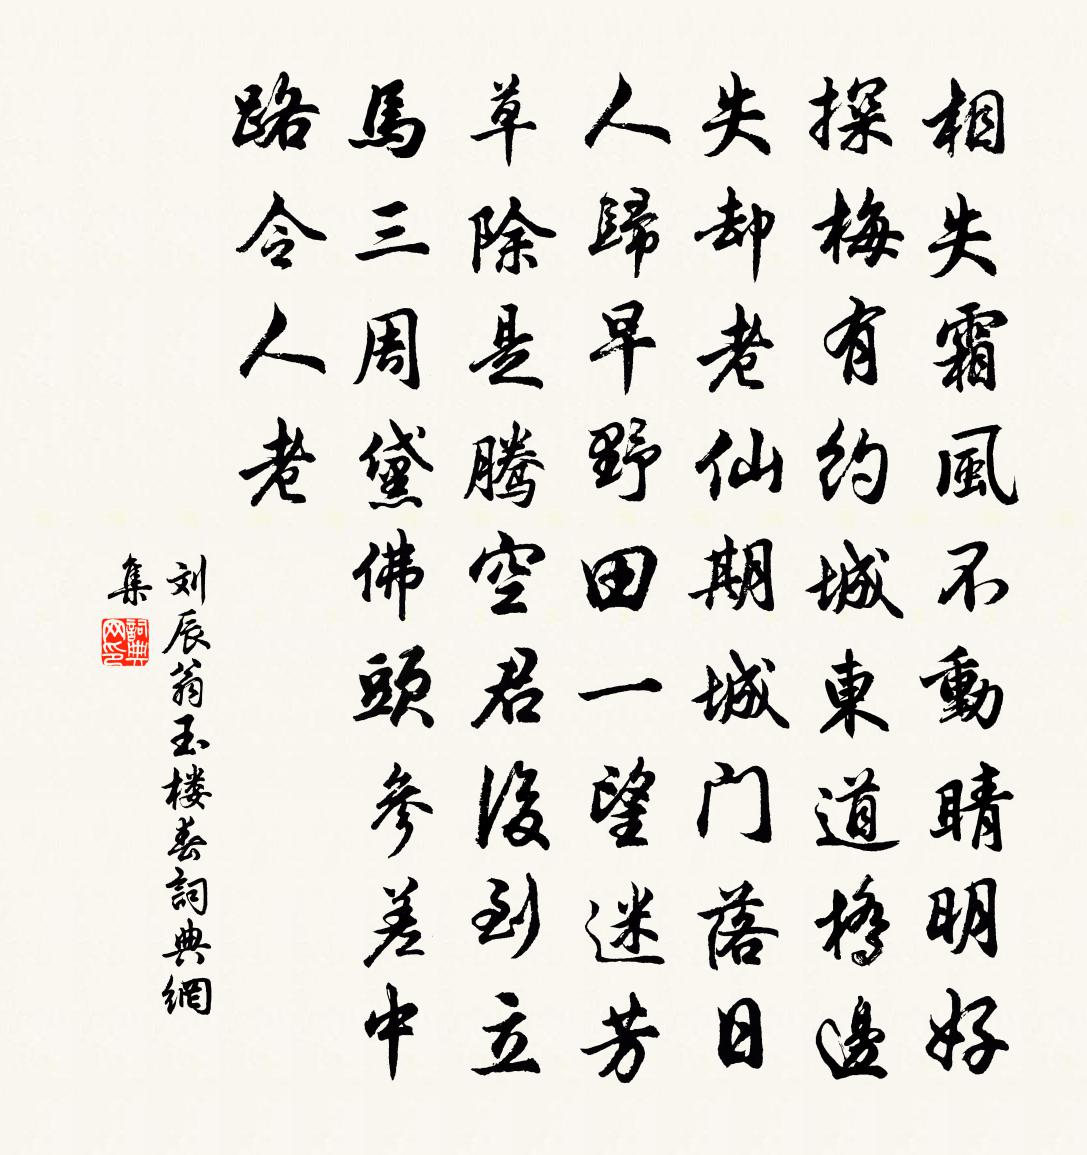 相失霜風不動晴明好
探梅有約城東道橋邊
失却老仙期城门落日
人歸早野田一望迷芳
草除是騰空君後到立
馬三周黛佛頭參差中
路令人老
刘辰翁玉楼春詞典網
集
詞典
网印